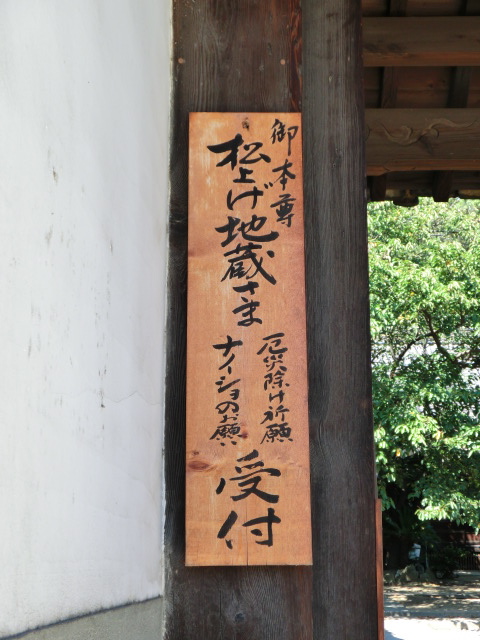 御本尊
松上げ地蔵さま
厄災除け祈願
ナイショのお願い
受付